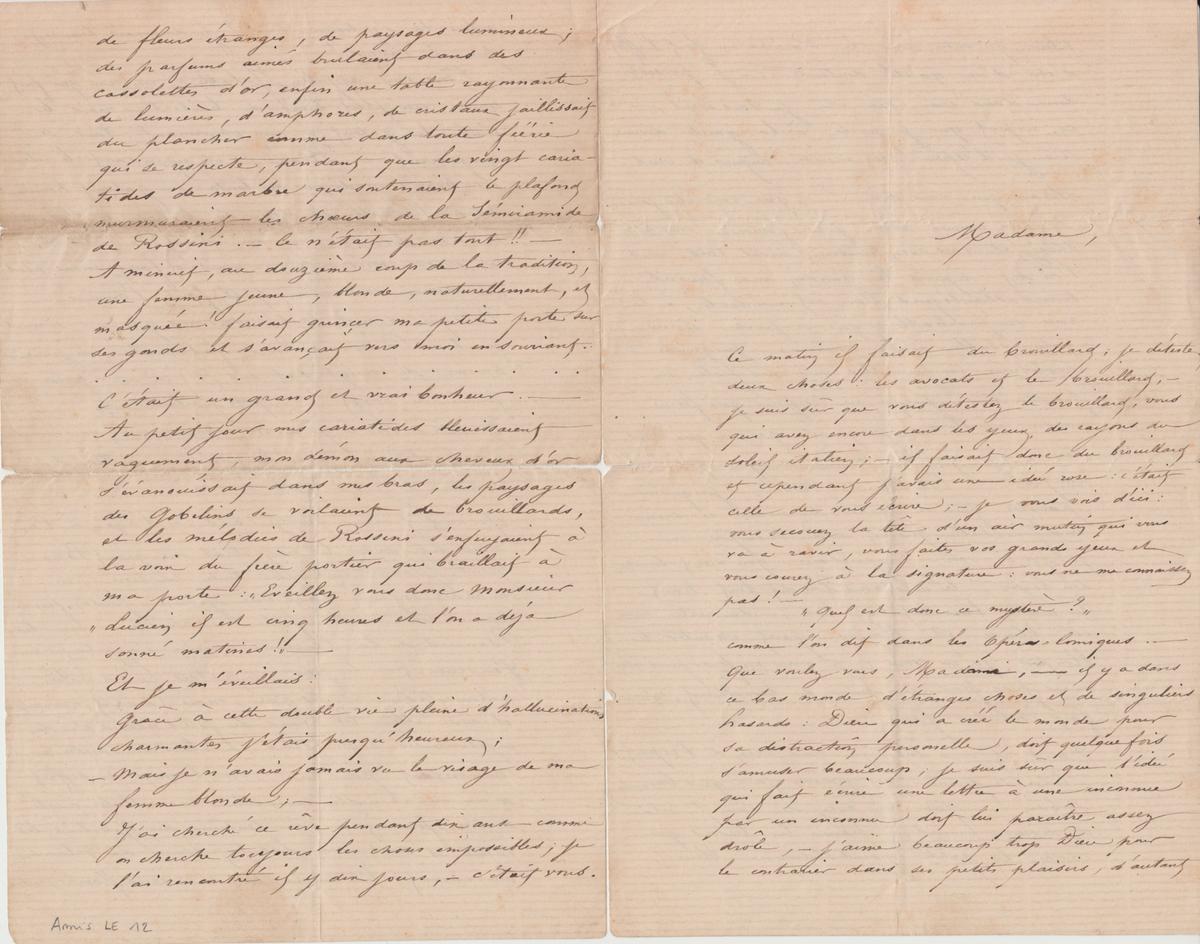 de fleurs étranges, de paysages lumineux ;
des parfums aimés brulaient dans des
cassolettes d'or, enfin une table rayonnante
de lumières, d'amphores, de cristaux jaillissait
du plancher comme dans toute féérie
qui se respecte, pendant que les vingt caria-
tides de marbre qui soutenaient le plafond
murmuraient les chœurs de la Sémiramide
de Rossini. — Ce n'était pas tout !! —
A minuit, au douzième coup de la tradition,
une femme jeune, blonde, naturellement, et
masquée ! faisait grincer ma petite porte sur
ses gonds et s'avançait vers moi en souriant.
. . . . . . . . . . . .
C'était un grand et vrai bonheur. —
Au petit jour mes cariatides bleuissaient
vaguement, mon démon aux cheveux d'or
s'évanouissait dans mes bras, les paysages
des Gobelins se voilaient de brouillards,
et les mélodies de Rossini s'enfuyaient à
la voix du fière portier qui braillait à
ma porte : „Eveillez vous donc Monsieur
„Lucien il est cinq heures et l'on a déjà
sonné matines !! —
Et je m'éveillais :
Grâce à cette double vie pleine d'hallucinations
charmantes j'étais presqu'heureux ;
— Mais je n'avais jamais vu le visage de ma
femme blonde ; —
J'ai cherché ce rêve pendant dix ans comme
on cherche toujours les choses impossibles ; je
l'ai rencontré il y dix jours, — c'était vous.
Amis LE 12
Madame,
Ce matin il faisait du brouillard ; je déteste
deux choses : les avocats et le brouillard, —
je suis sûr que vous détestez le brouillard, vous
qui avez encore dans les yeux des rayons du
soleil italien ; — il faisait donc du brouillard
et cependant j'avais une idée rose : c'était
celle de vous écrire ; — je vous vois d'ici :
vous secouez la tête d'un air mutin qui vous
va à ravir, vous faites vos grands yeux et
vous courez à la signature : vous ne me connaissez
pas ! —
„ Quel est donc ce mystère ? „
comme l'on dit dans les Opéras-Comiques. —
Que voulez vous, Madame, — il y a dans
ce bas monde d'étranges choses et de singuliers
hasards : Dieu qui a créé le monde pour
sa distraction personnelle, doit quelque fois
s'amuser beaucoup ; je suis sûr que l'idée
qui fait écrire une lettre à une inconnue
par un inconnu doit lui paraître assez
drôle, — j'aime beaucoup trop Dieu pour
le contrarier dans ses petits plaisirs, d'autant